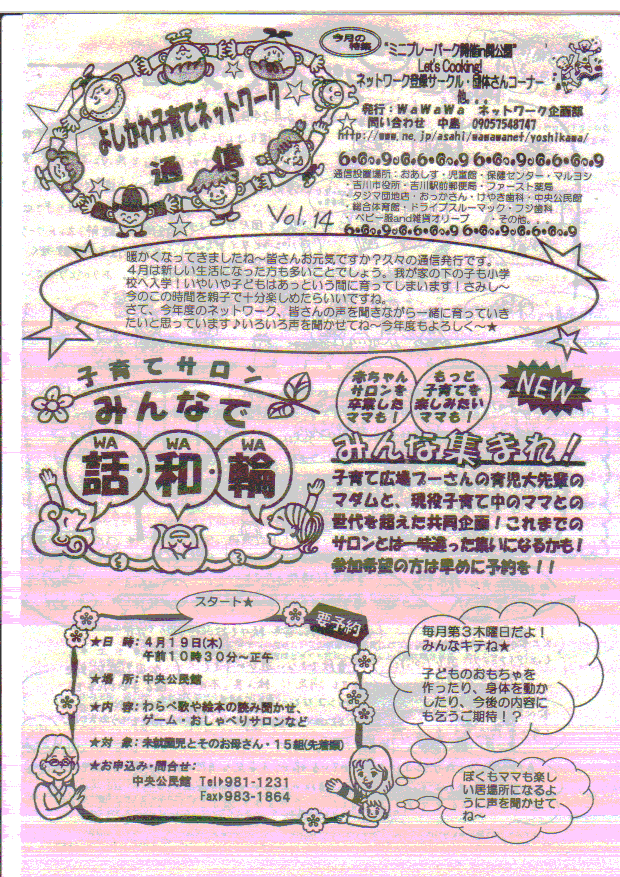 よしかわ子育てネットワーク
通信
Vol.14
今月の特集
"ミニプレーパーク開催in関公園"
Let's Cooking!
ネットワーク登録サークル・団体さんコーナー
他。。。
発行：ＷａＷａＷａ ネットワーク企画部
☆ 問い合わせ 中島 09057548747
http://www.ne.jp/asahi/wawawanet/yoshikawa/
通信設置場所：おあしす・児童館・保健センター・マルヨシ
・吉川市役所・吉川駅前郵便局・ファースト薬局
・タジマ団地店・おっかさん・けやき歯科・中央公民館
・総合体育館・ドライブスルーマック・フジ歯科
・ベビー服and雑貨オリーブ ・その他。。。
暖かくなってきましたね～皆さんお元気ですか？久々の通信発行です。
４月は新しい生活になった方も多いことでしょう。我が家の下の子も小学
校へ入学！いやいや子どもはあっという間に育ってしまいます！さみし～
今のこの時間を親子で十分楽しめたらいいですね。
さて、今年度のネットワーク、皆さんの声を聞きながら一緒に育っていき
たいと思っています♪いろいろ声を聞かせてね～今年度もよろしく～★
子育てサロン
みんなで
WA WA WA
話・和・輪
赤ちゃん
サロンを
卒業した
ママも！
もっと
子育てを
楽しみたい
ママも！
NEW
みんな集まれ！
子育て広場プーさんの育児大先輩の
マダムと、現役子育て中のママとの
世代を超えた共同企画！これまでの
サロンとは一味違った集いになるかも！
参加希望の方は早めに予約を！！
スタート★
要予約
★日 時：４月１９日(木)
午前１０時３０分～正午
★場 所：中央公民館
★内 容：わらべ歌や絵本の読み聞かせ、
ゲーム・おしゃべりサロンなど
★対 象：未就園児とそのお母さん・１５組(先着順)
★お申込み・問合せ：
中央公民館 Tel▶981-1231
Fax▶983-1864
毎月第３木曜日だよ！
みんなキテね★
子どものおもちゃを
作ったり、身体を動か
したり、今後の内容に
も乞うご期待！？
ぼくもママも楽し
い居場所になるよ
うに声を聞かせて
ね～